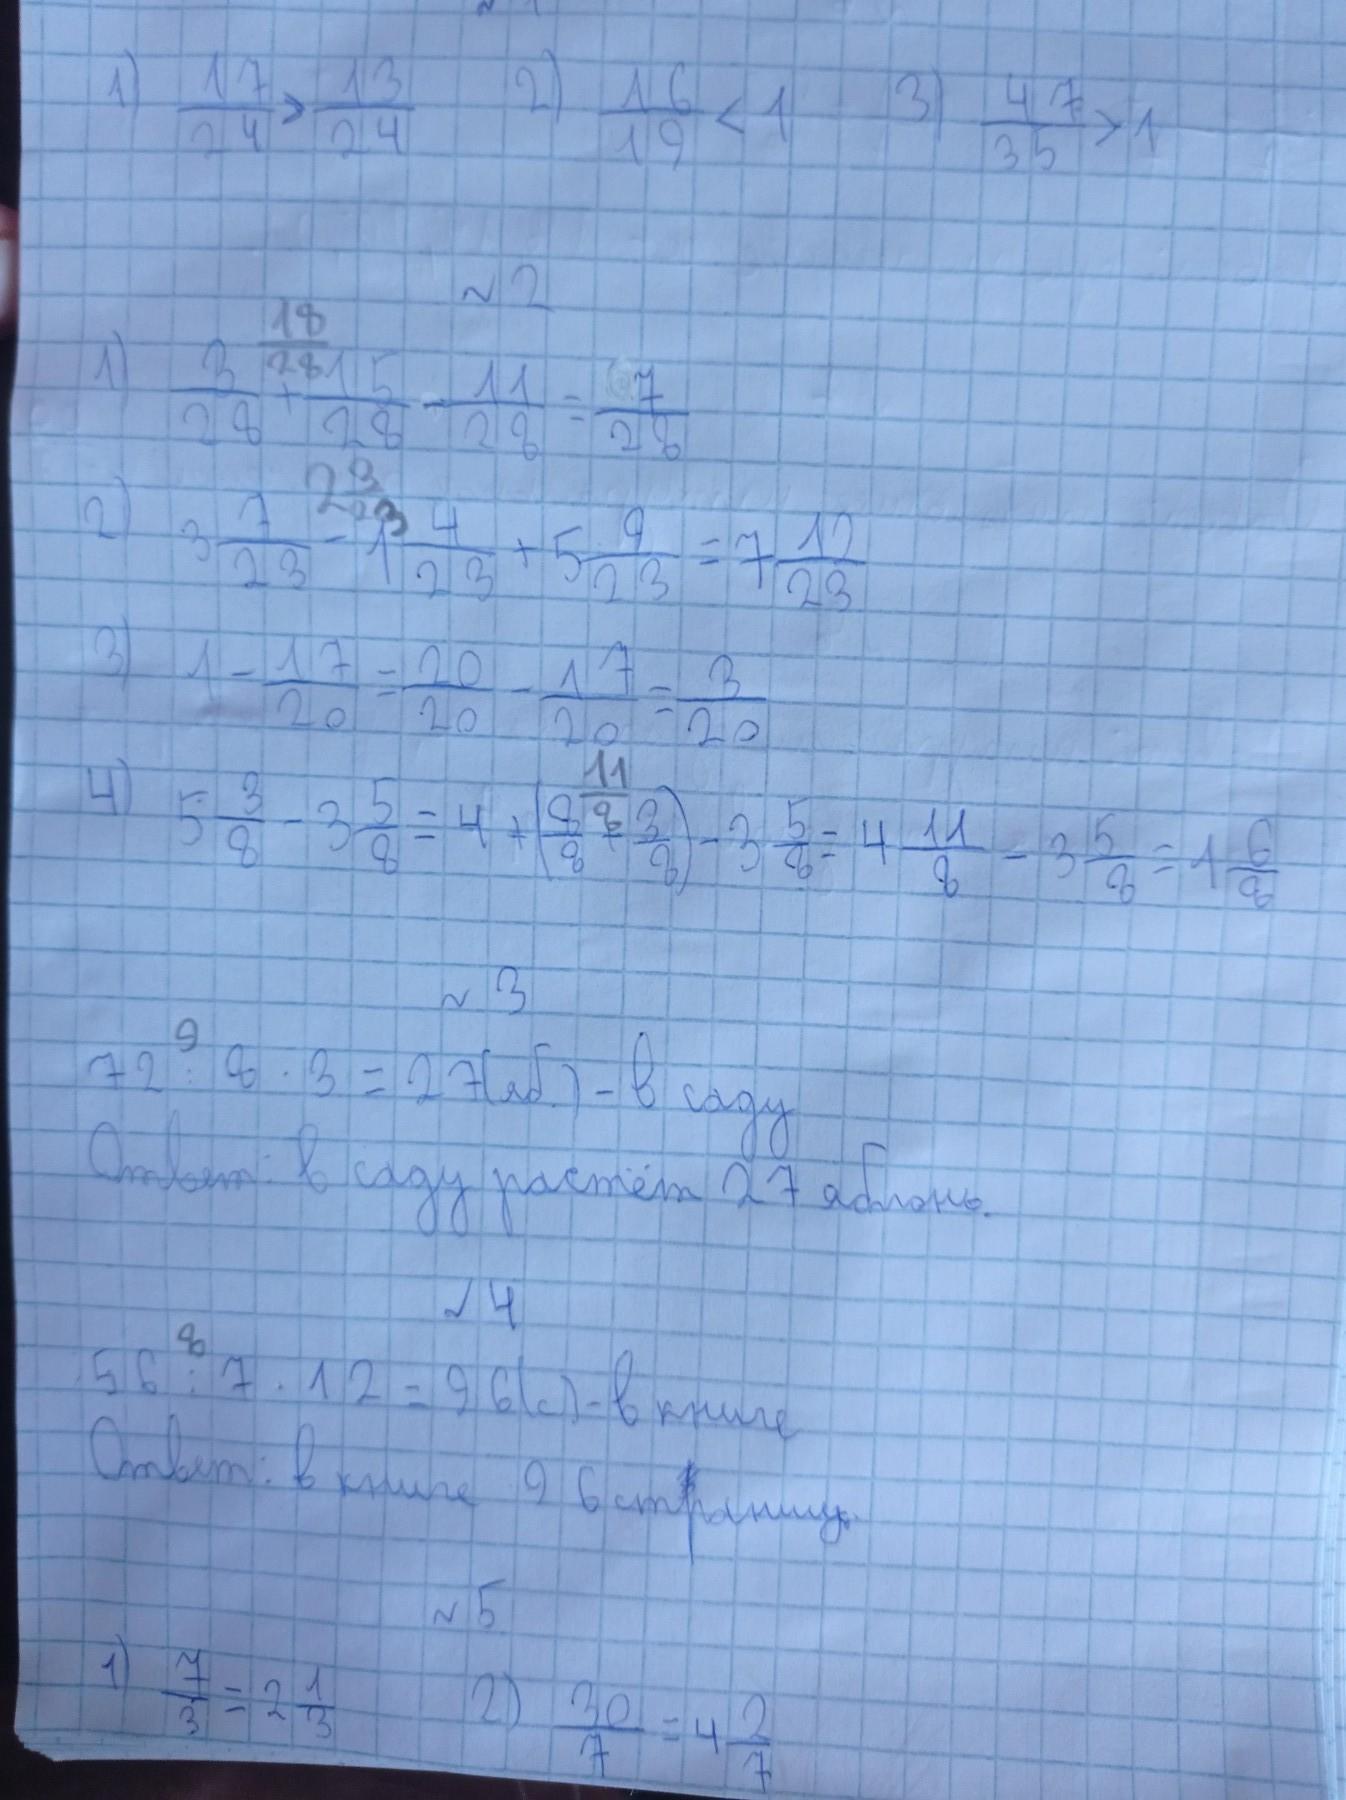 № 1
1) 17/24 > 13/24 2) 16/19 < 1 3) 47/35 > 1
№ 2
18/28
1) 3/28 + 15/28 - 11/28 = 7/28
2 3/23
2) 3 7/23 - 1 4/23 + 5 9/23 = 7 12/23
3) 1 - 17/20 = 20/20 - 17/20 = 3/20
11/8
4) 5 3/8 - 3 5/8 = 4 + (8/8 + 3/8) - 3 5/8 = 4 11/8 - 3 5/8 = 1 6/8
№ 3
9
72 : 8 · 3 = 27(яб.) - в саду
Ответ: в саду растёт 27 яблонь.
№ 4
8
56 : 7 · 12 = 96(с) - в книге
Ответ: в книге 96 страниц.
№ 5
1) 7/3 = 2 1/3 2) 30/7 = 4 2/7